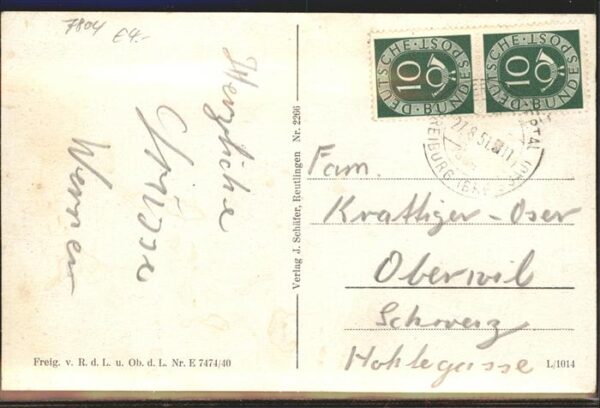 7804 £4.-
Herzliche
Grüsse
Werner
Verlag J. Schäfer, Reutlingen Nr. 2266
DEUTSCHE BUNDESPOST
10
DEUTSCHE BUNDESPOST
10
FREIBURG
Fam.
Krattiger-Oser
Oberwil
Schweiz
Hohlegasse
Freig. v. R. d. L. u. Ob. d. L. Nr. E 7474/40
L/1014